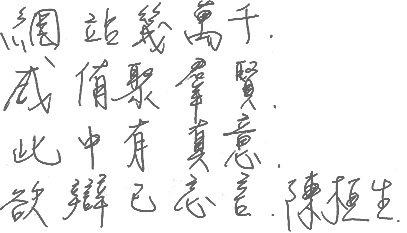 網站幾萬千.
咸聚羣賢.
此中有真意.
欲辯已忘言.陳桓生.